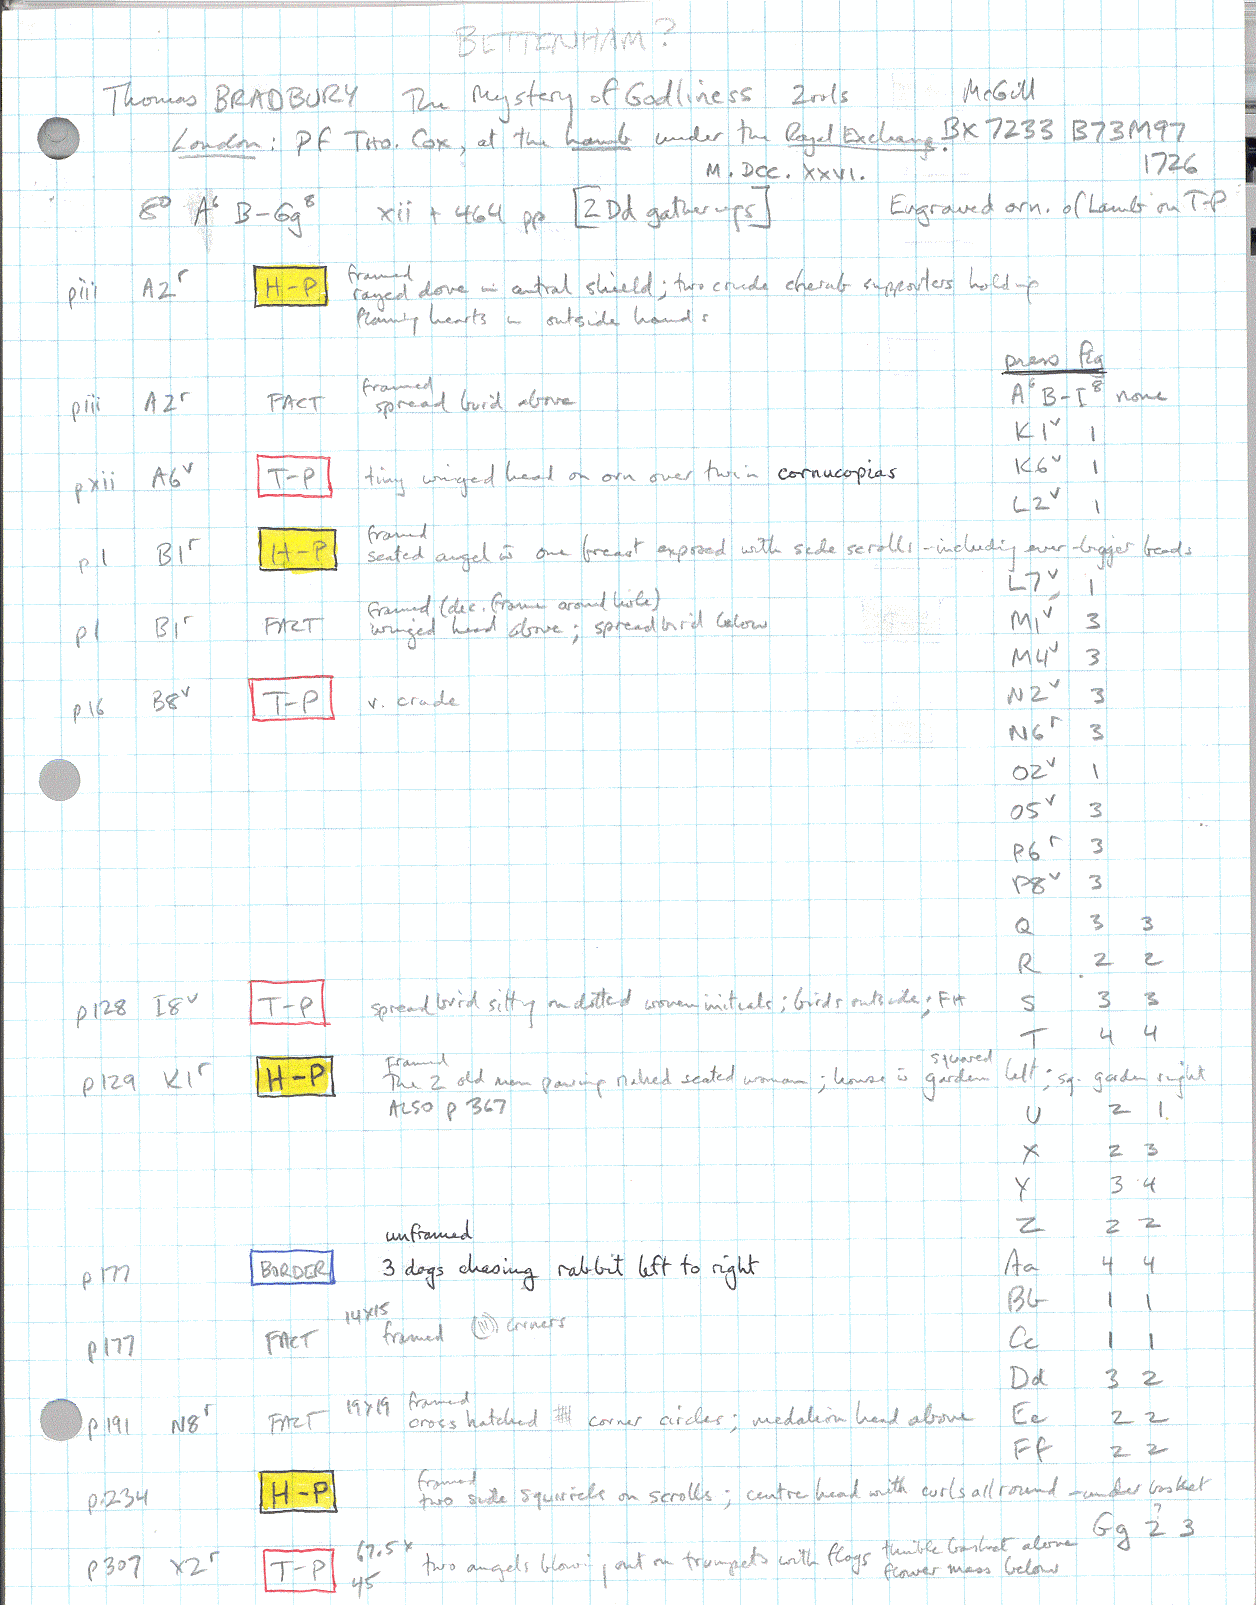 BETTENHAM?
Thomas BRADBURY The Mystery of Godliness 2 vols McGill
London: Pf Tho. Cox, at the Lamb under the Royal Exchange. BX 7233 B73M97
M. DCC. XXVI. 1726
8° A⁶ B-Gg⁸ xii + 464 pp [2 Dd gatherings] Engraved orn. of Lamb on T-P
framed
piii A2r H-P rayed dove in central shield; two crude cherub supporters holding
flaming hearts in outside hands
press fig
framed
piii A2r FACT spread bird above
A⁶ B-I⁸ none
K1v 1
pxii A6v T-P tiny winged head on orn over twin cornucopias
K6v 1
L2v 1
framed
p1 B1r H-P seated angel is one breast exposed with side scrolls - including ever-bigger beads
L7v 1
framed (dec. frame around hole)
p1 B1r FACT winged head above; spread bird below
M1v 3
M4v 3
p16 B8v T-P v. crude
N2v 3
N6r 3
O2v 1
O5v 3
P6r 3
P8v 3
Q 3 3
R 2 2
p128 I8v T-P spread bird sitting on dotted woven initials; birds outside; FH
S 3 3
T 4 4
framed squared
p129 K1r H-P The 2 old men pawing naked seated woman; house is garden left; sq. garden right
ALSO p 367
U 2 1
X 2 3
Y 3 4
Z 2 2
unframed
p177 BORDER 3 dogs chasing rabbit left to right
Aa 4 4
Bb 1 1
14x15
p177 FACT framed corners
Cc 1 1
Dd 3 2
framed
p191 N8r FACT 19x19 cross hatched # corner circles; medalion head above
Ee 2 2
Ff 2 2
framed
p234 H-P two side squirrels on scrolls; centre head with curls all round - under basket
Gg 2? 3
p307 X2r T-P 67.5 x 45 two angels blowing out on trumpets with flags thimble basket above
flower mass below